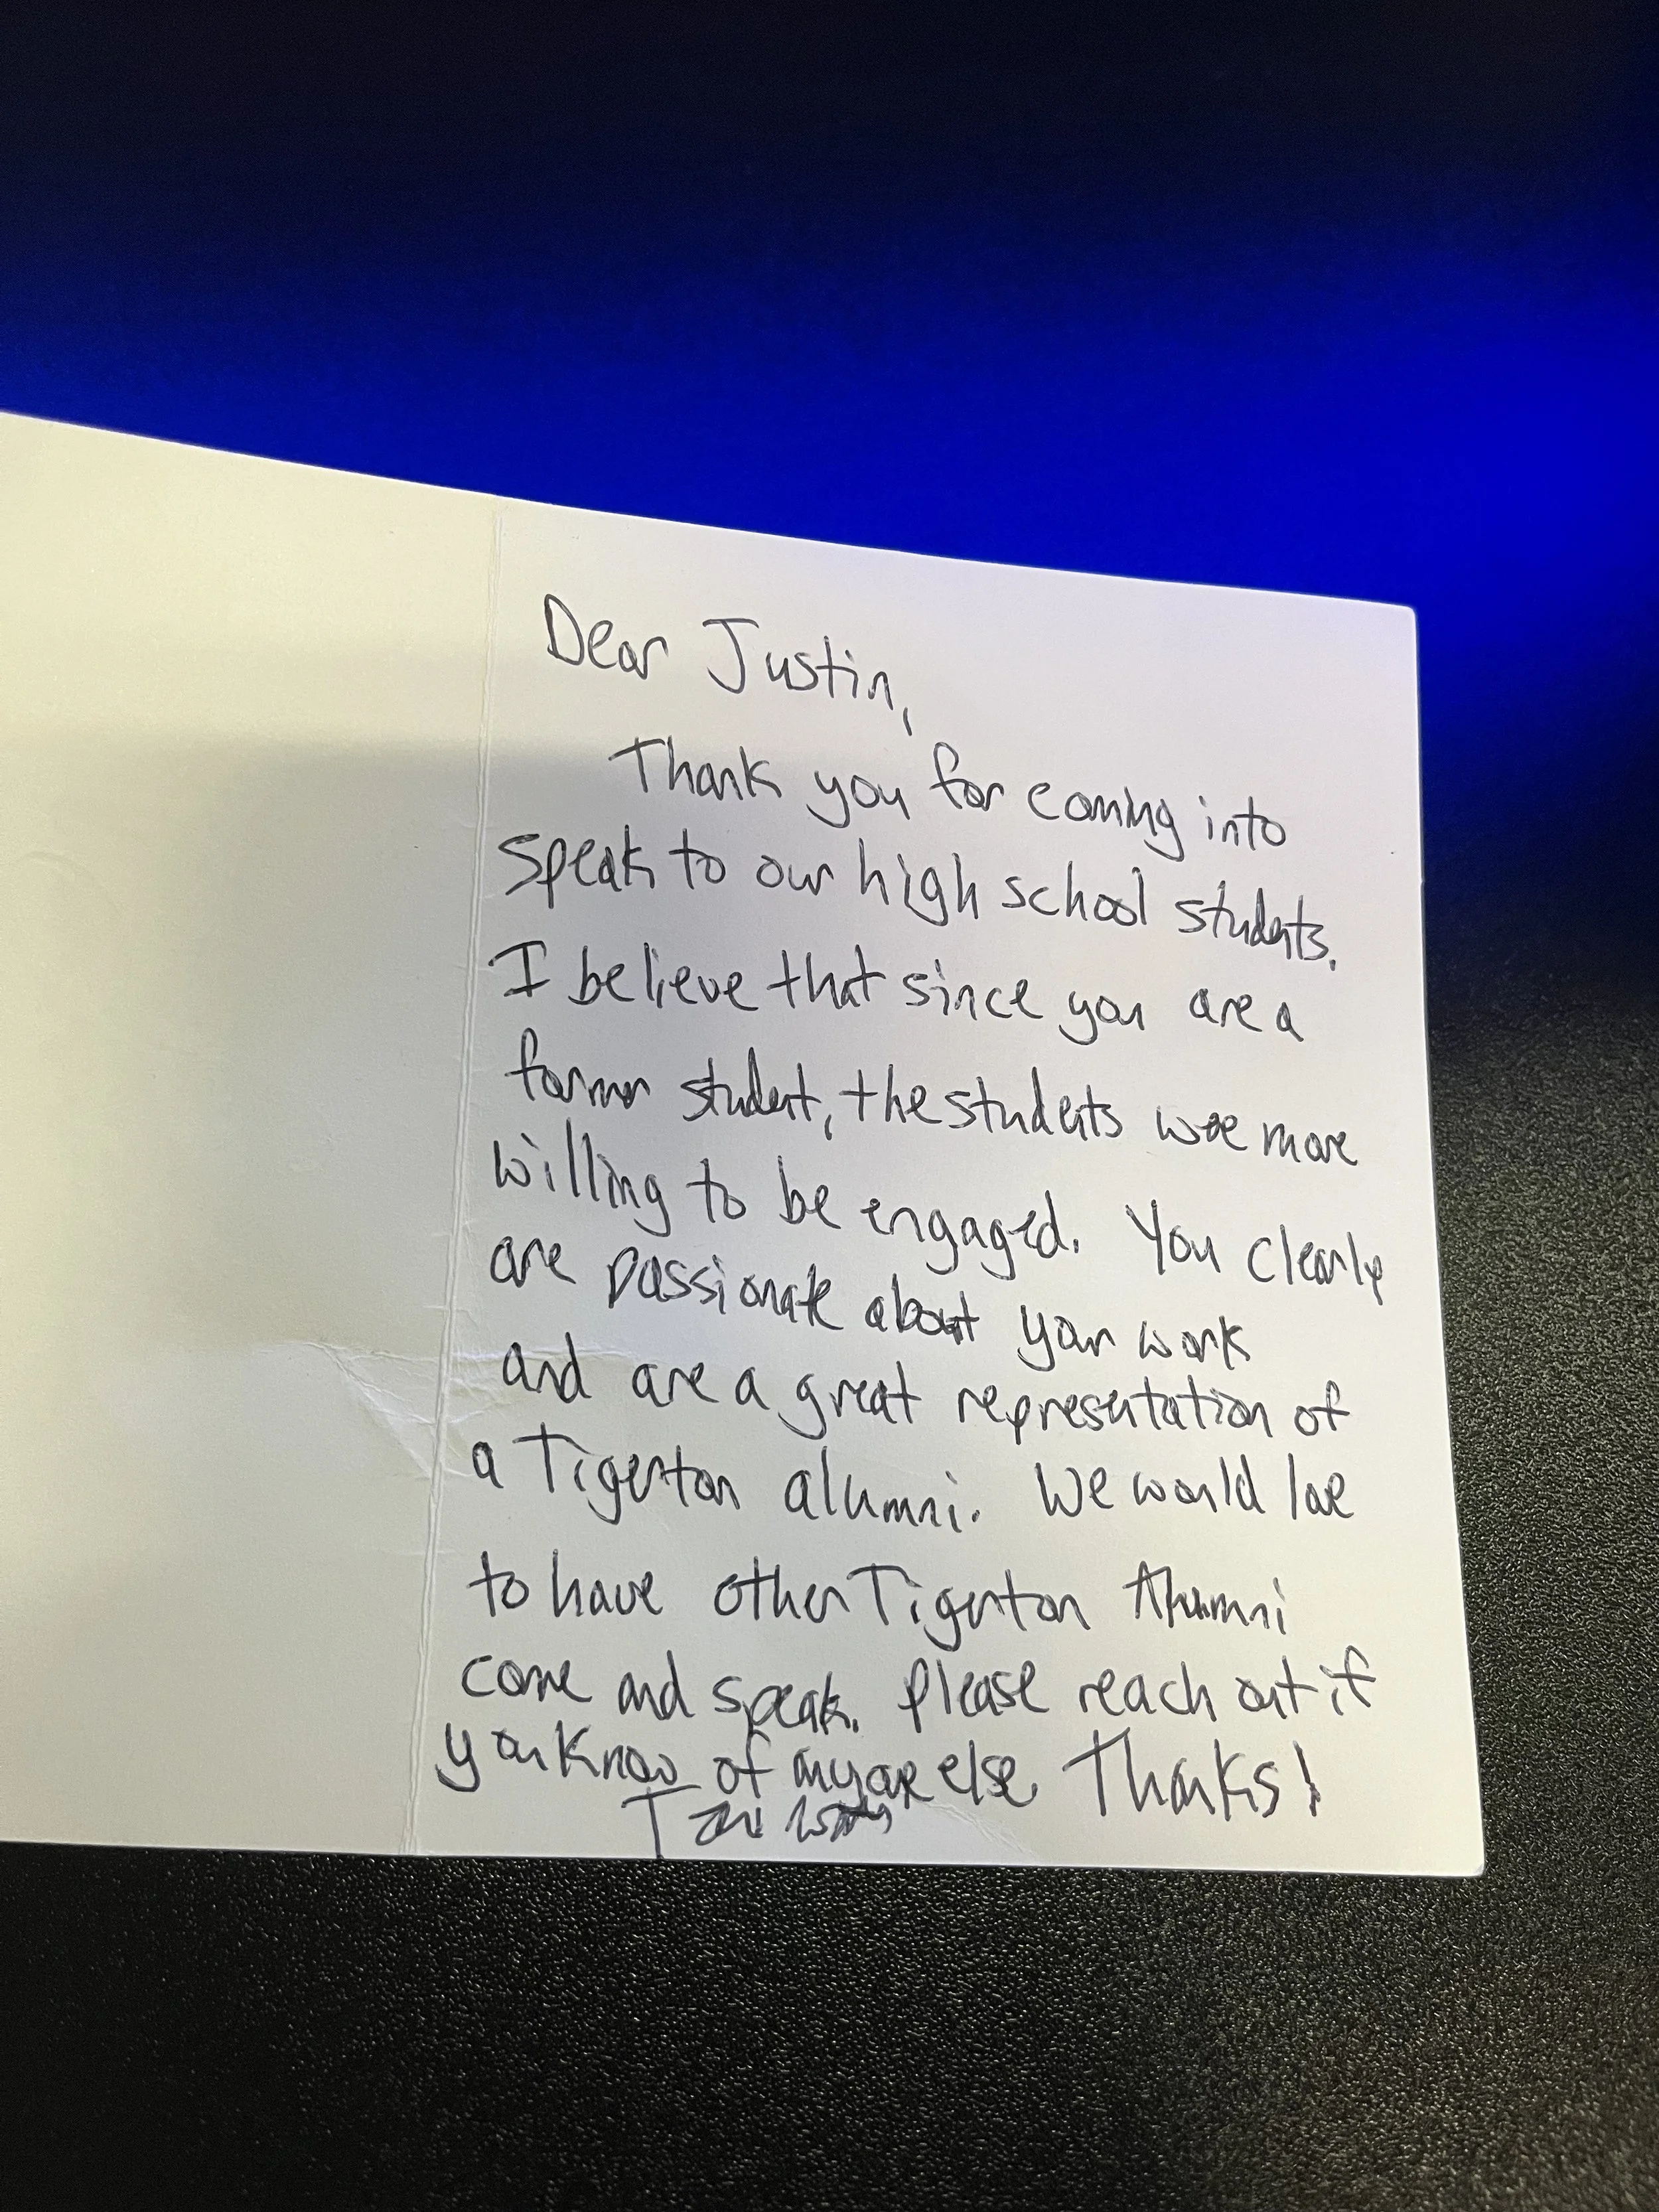 Dear Justin,
Thank you for coming into
speak to our high school students.
I believe that since you are a
former student, the students were more
willing to be engaged. You clearly
are passionate about your work
and are a great representation of
a Tigerton alumni. We would love
to have other Tigerton Alumni
come and speak. Please reach out if
you know of anyone else. Thanks!